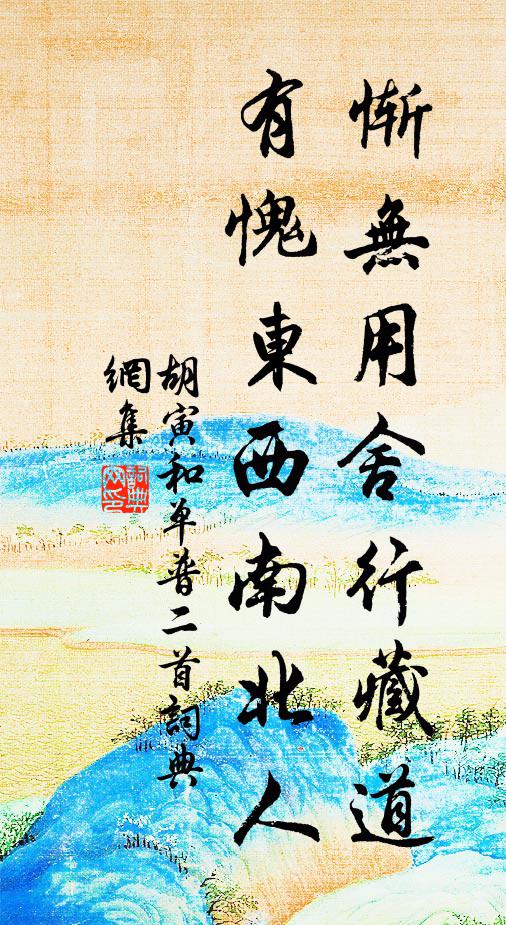 慚無用舍行藏道
有愧東西南北人
胡寅和单普二首詞典
網集